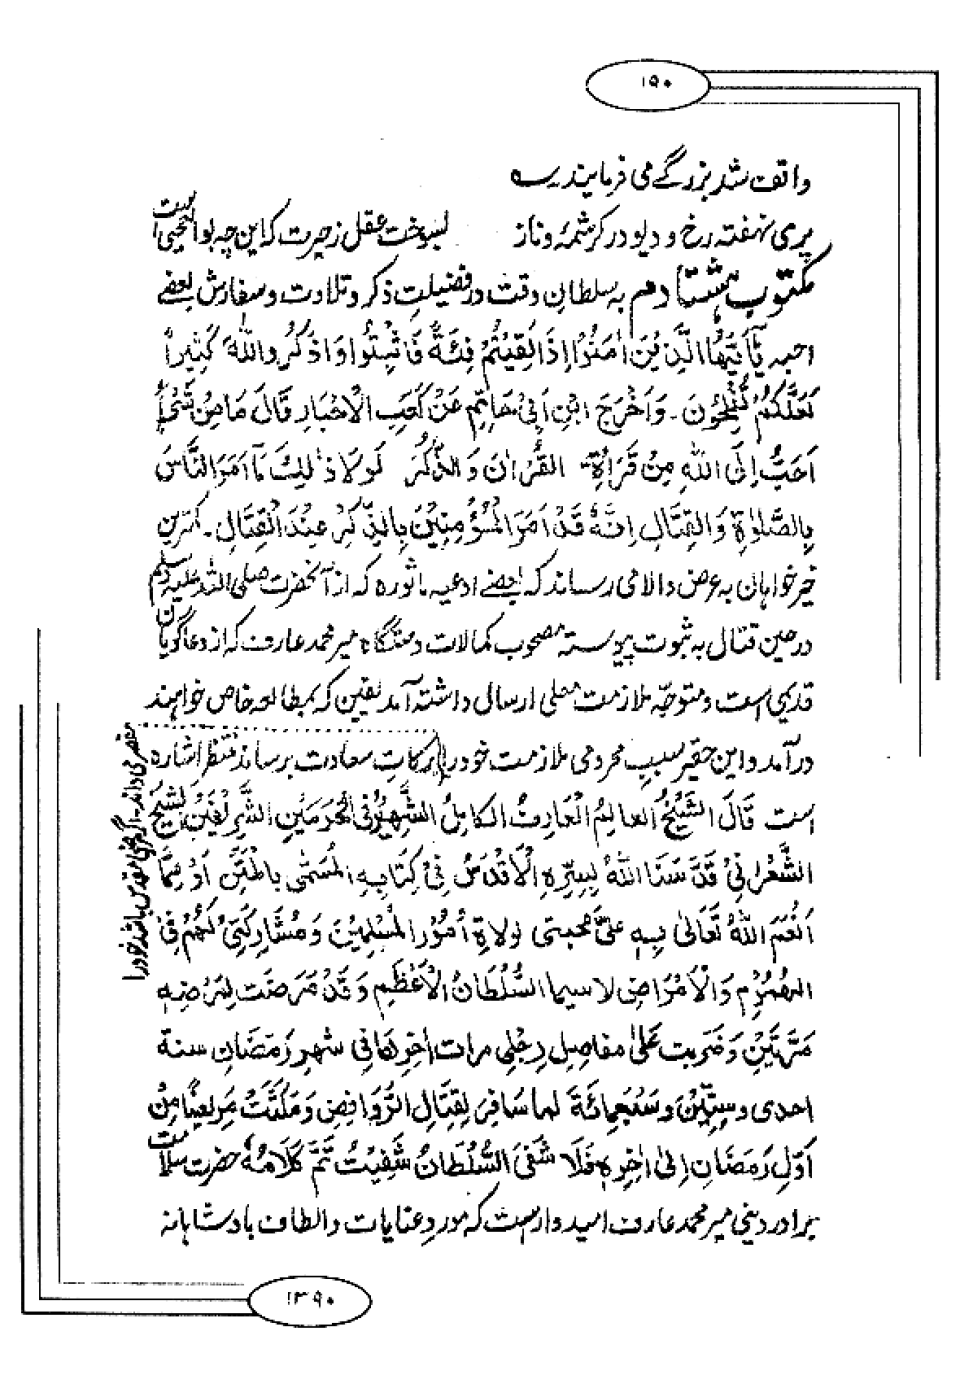 ۱۵۰
واقف شد بزرگے می فرمایند سه
پری نهفته رخ و دیو در کرشمهٔ و ناز بسوخت عقل ز حیرت که این چه بوالعجبی است
مکتوب هشتادم به سلطان وقت در فضیلت ذکر و تلاوت و سفارش بعضے
احبه یٰٓاَیُّهَا الَّذِیْنَ اٰمَنُوْا اِذَا لَقِیْتُمْ فِئَةً فَاثْبُتُوْا وَاذْكُرُوا اللهَ كَثِیْراً
لَعَلَّكُمْ تُفْلِحُوْنَ۔ وَاَخْرَجَ ابْنِ اَبِیْ حَاتِمٍ عَنْ كَعْبِ الْاَحْبَارِ قَالَ مَا مِنْ شَیْءٍ
اَحَبُّ اِلَى اللهِ مِنْ قِرَاْةِ الْقُرْاٰنِ وَالذِّكْرِ لَوْلَا ذٰلِكَ مَآ اَمَرَ النَّاسَ
بِالصَّلٰوةِ وَالْقِتَالِ اِنَّهٗ قَدْ اَمَرَ الْمُؤْمِنِیْنَ بِالذِّكْرِ عِنْدَ الْقِتَالِ۔ کمترین
خیرخواهان به عرض والا می رساند که بعضے ادعیه ماثوره که از آنحضرت صلی الله علیه وسلم
در حین قتال به ثبوت پیوسته مصحوب کمالات دستگاه میر محمد عارف که از دعاگویان
قدیمی است و متوجّه ملازمت معلی ارسالی داشته آمد یقین که بمطالعه خاص خواهند
در آمد و این حقیر بسبب محرومی ملازمت خود را از برکات سعادت برساند منتظر اشاره
مقصر می داند۔ اگر مرضی مقدس باشد خود را
است قَالَ الشَّیْخُ العالِمُ الْعَارِفُ الكامِلُ الشَّهِیْرُ فِی الْحَرَمَیْنِ الشَّرِیْفَیْنِ الشیخ
الشَّعْرَانِیْ قَدَّسَنَا اللهُ بِسِرِّهِ الْاَقْدَسِ فِیْ كِتَابِهِ الْمُسَمّٰی بِالْمِنَنِ اَوْ مِمَّا
اَنْعَمَ اللهُ تَعَالٰی بِهٖ عَلَیَّ محبتی لولاةِ اُمُوْرِ الْمُسْلِمِیْنَ وَمُشَارِكَتِیْ لَهُمْ فِی
الهُمُوْمِ وَالْاَمْرَاضِ لا سیما السُّلْطَانُ الْاَعْظَمِ وَقَدْ مَرَضْتُ لِمَرَضِهٖ
مَرَّتَیْنِ وَضَرَبَتْ عَلیٰ مفاصِلِ رِجْلِی مرات اٰخِرِهَا فِی شهرِ رَمَضَانِ سنة
احدی وسِتِّیْنَ وَسَبْعِمِائَة لما سَافَرَ لِقِتَالِ الرَّوَافِضِ وَمَكَثْتُ مَرِیضاً مِنْ
اَوَّلِ رَمَضَانِ اِلیٰ اٰخِرِهٖ فَلَا شَفَی السُّلْطَانُ شَفِیْتُ تَمَّ كَلَامُهٗ حضرت سلامت
برادر دینی میر محمد عارف امیدوارست که مورد عنایات و الطاف بادشاهانه
۱۳۹۰